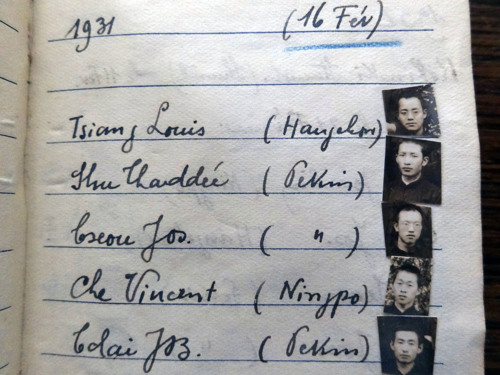 1931 (16 Fév)
Tsiang Louis (Hangchow)
Shu Thaddée (Pekin)
Tseou Jos. ( " )
Che Vincent (Ningpo)
Tsai JB. (Pekin)